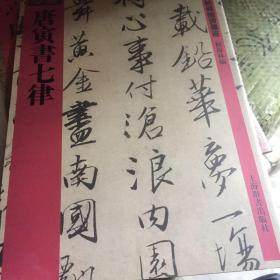 載鉛華夢一場
將心事付滄浪內園
舞黃金盡南國
唐寅書七律
上海辭書出版社